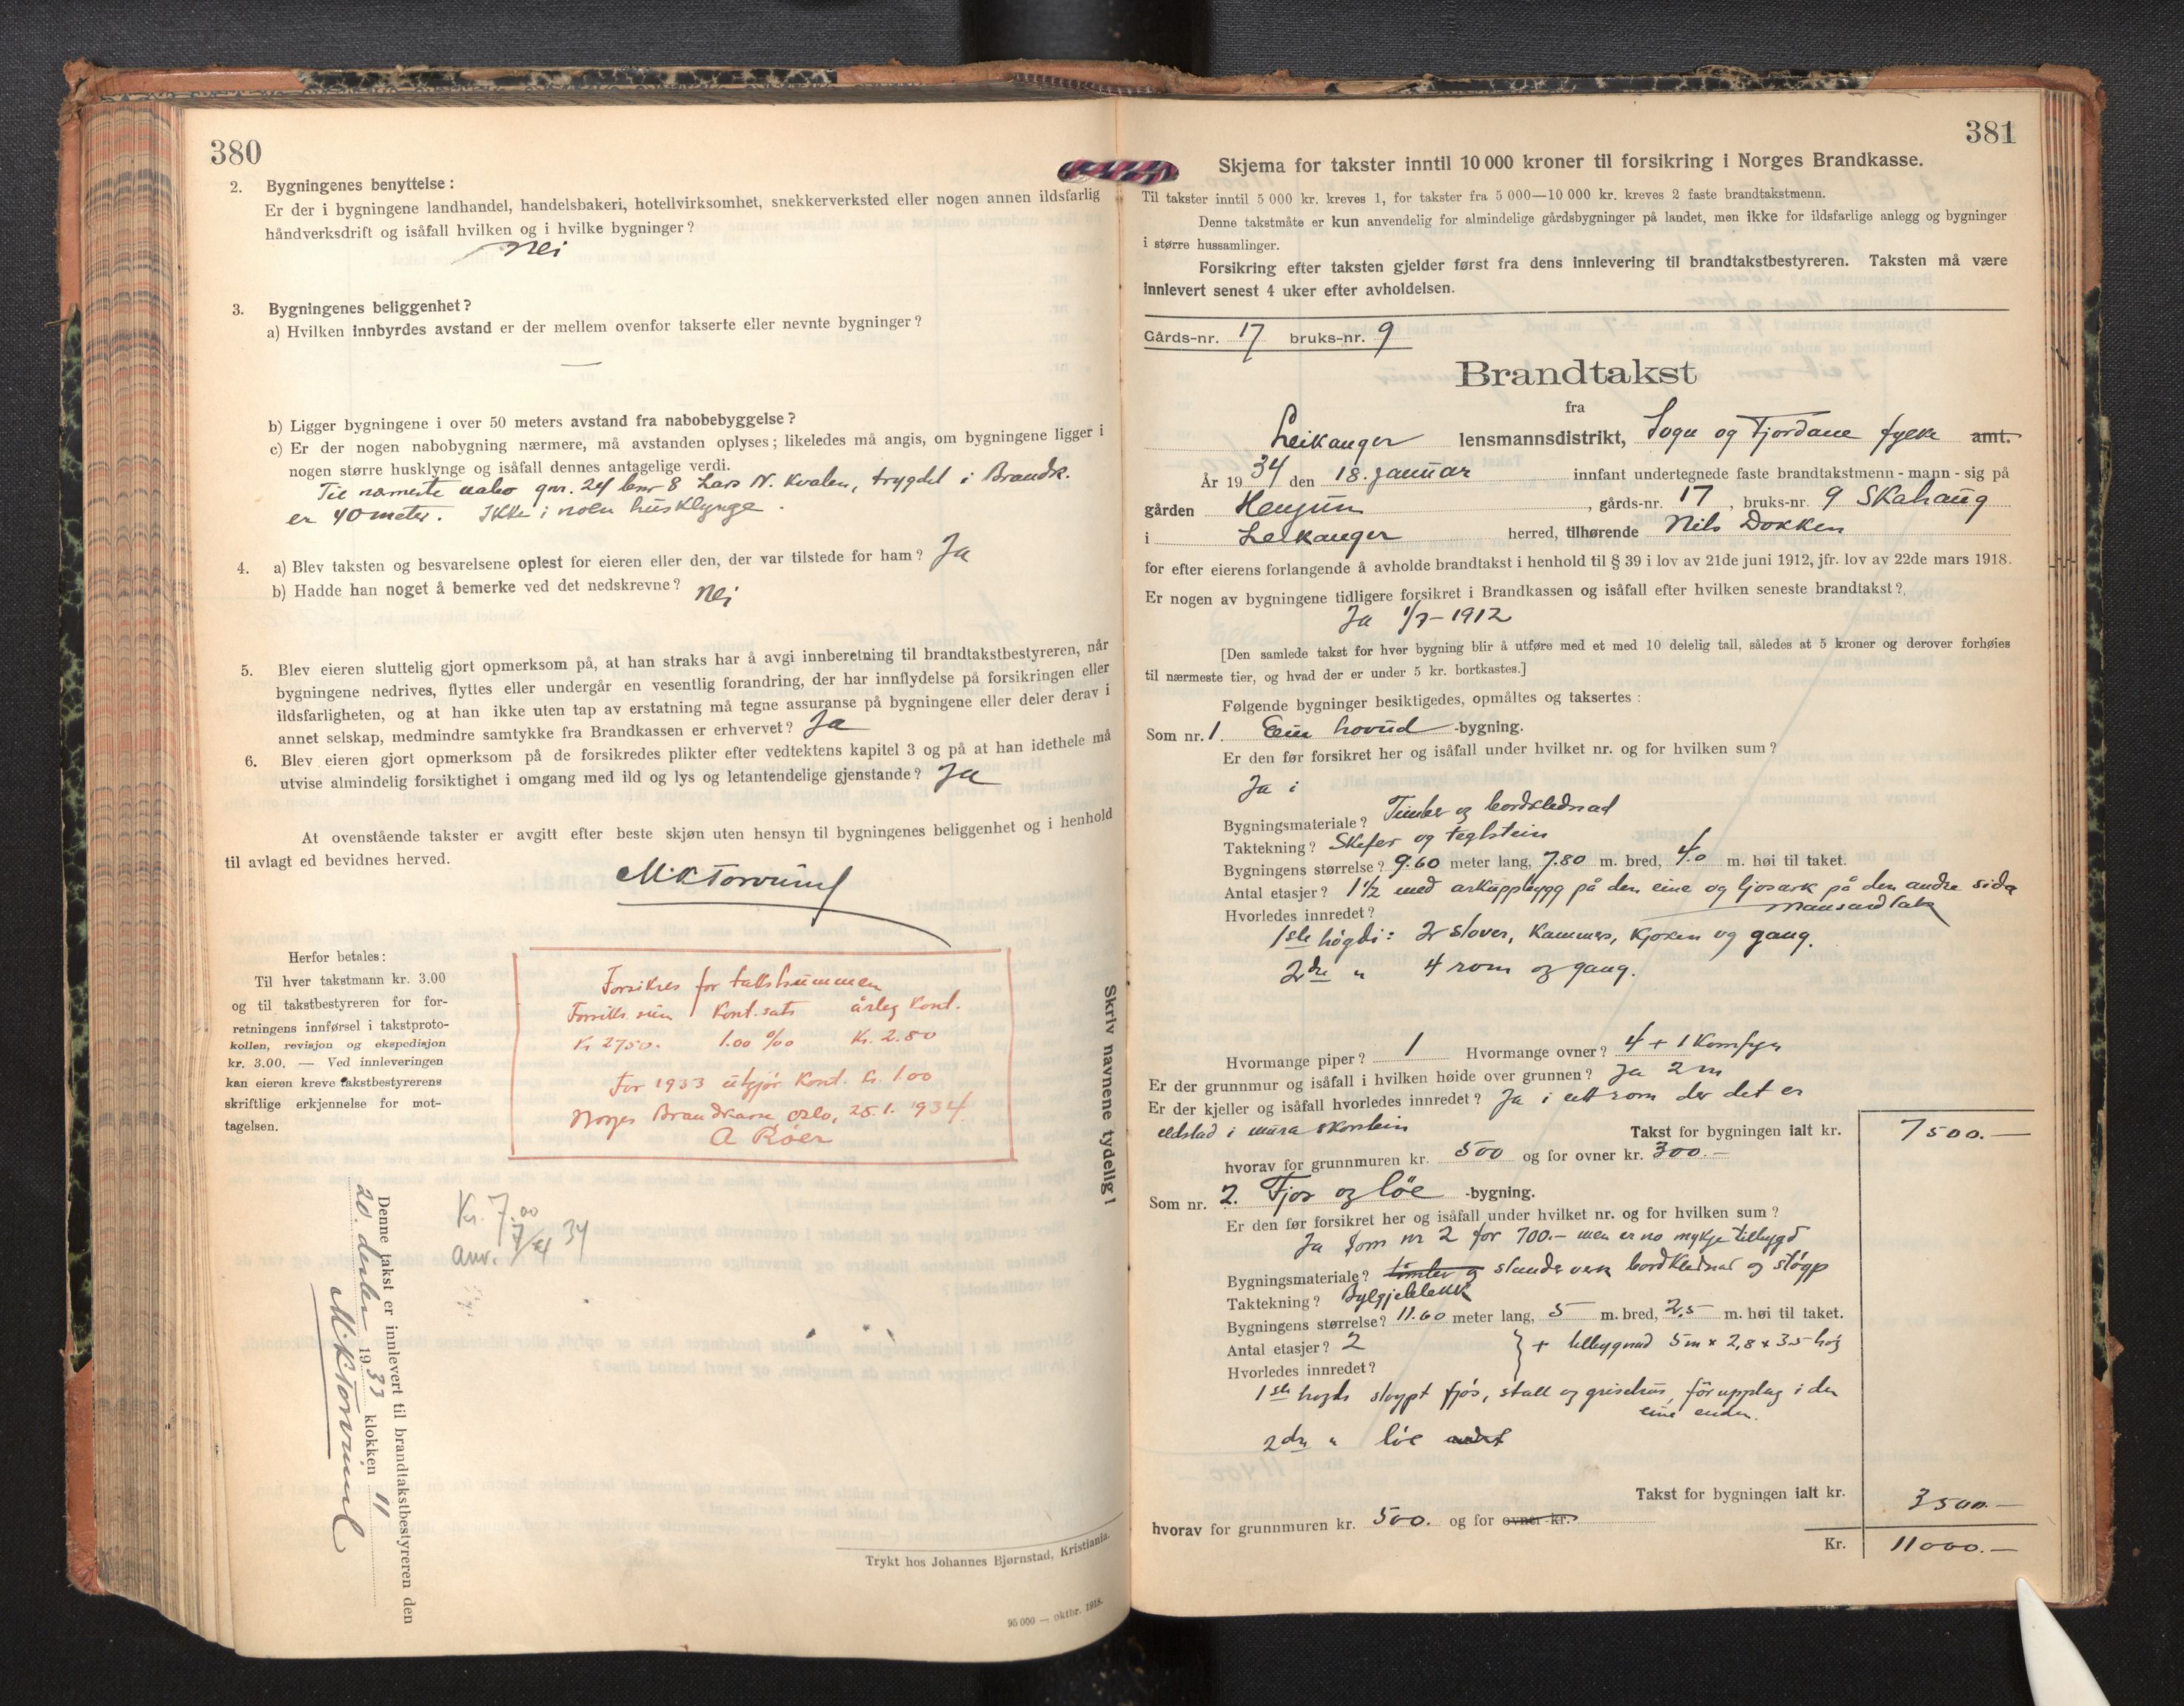 380
2. Bygningenes benyttelse:
Er der i bygningene landhandel, handelsbakeri, hotellvirksomhet, snekkerverksted eller nogen annen ildsfarlig
håndverksdrift og isåfall hvilken og i hvilke bygninger?
Nei
3. Bygningenes beliggenhet?
a) Hvilken innbyrdes avstand er der mellem ovenfor takserte eller nevnte bygninger?
—
b) Ligger bygningene i over 50 meters avstand fra nabobebyggelse?
c) Er der nogen nabobygning nærmere, må avstanden oplyses; likeledes må angis, om bygningene ligger i
nogen større husklynge og isåfall dennes antagelige verdi.
Til næmeste nabo gnr. 24 bnr 8 Lars N. Kvalen, trygdet i Brandk.
er 40 meter. Ikke i noen husklynge.
4. a) Blev taksten og besvarelsene oplest for eieren eller den, der var tilstede for ham? Ja
b) Hadde han noget å bemerke ved det nedskrevne? Nei
5. Blev eieren sluttelig gjort opmerksom på, at han straks har å avgi innberetning til brandtakstbestyreren, når
bygningene nedrives, flyttes eller undergår en vesentlig forandring, der har innflydelse på forsikringen eller
ildsfarligheten, og at han ikke uten tap av erstatning må tegne assuranse på bygningene eller deler derav i
annet selskap, medmindre samtykke fra Brandkassen er erhvervet? Ja
6. Blev eieren gjort opmerksom på de forsikredes plikter efter vedtektens kapitel 3 og på at han idethele må
utvise almindelig forsiktighet i omgang med ild og lys og letantendelige gjenstande? Ja
At ovenstående takster er avgitt efter beste skjøn uten hensyn til bygningenes beliggenhet og i henhold
til avlagt ed bevidnes herved.
Herfor betales:
Til hver takstmann kr. 3.00
og til takstbestyreren for for-
retningens innførsel i takstproto-
kollen, revisjon og ekspedisjon
kr. 3.00. — Ved innleveringen
kan eieren kreve takstbestyrerens
skriftlige erkjennelse for mot-
tagelsen.
Forsikres for takstsummen
Forsikr. sum Kont. sats årleg Kont.
Kr 2750. 1.00 ‰ Kr. 2.80
For 1933 utgjør Kont. Kr. 1.00
Norges Brandkasse Oslo, 25.1. 1934.
A Röer
Kr. 7.00
anv. 7/4 34
Denne takst er innlevert til brandtakstbestyreren den
20. desber 1933 klokken 11
Skriv navnene tydelig!
Trykt hos Johannes Bjørnstad, Kristiania.
95 000 — oktbr. 1918.
381
Skjema for takster inntil 10 000 kroner til forsikring i Norges Brandkasse.
Til takster inntil 5 000 kr. kreves 1, for takster fra 5 000—10 000 kr. kreves 2 faste brandtakstmenn.
Denne takstmåte er kun anvendelig for almindelige gårdsbygninger på landet, men ikke for ildsfarlige anlegg og bygninger
i større hussamlinger.
Forsikring efter taksten gjelder først fra dens innlevering til brandtakstbestyreren. Taksten må være
innlevert senest 4 uker efter avholdelsen.
Gårds-nr. 17 bruks-nr. 9
Brandtakst
fra
Leikanger lensmannsdistrikt, Sogn og Fjordane fylke amt.
År 1934 den 18. januar innfant undertegnede faste brandtakstmenn - mann - sig på
gården Henjum, gårds-nr. 17, bruks-nr. 9 Skahaug
i Leikanger herred, tilhørende Nils Dokken
for efter eierens forlangende å avholde brandtakst i henhold til § 39 i lov av 21de juni 1912, jfr. lov av 22de mars 1918.
Er nogen av bygningene tidligere forsikret i Brandkassen og isåfall efter hvilken seneste brandtakst?
Ja 1/7-1912
[Den samlede takst for hver bygning blir å utføre med et med 10 delelig tall, således at 5 kroner og derover forhøies
til nærmeste tier, og hvad der er under 5 kr. bortkastes.]
Følgende bygninger besiktigedes, opmåltes og taksertes:
Som nr. 1. Ein hovud -bygning.
Er den før forsikret her og isåfall under hvilket nr. og for hvilken sum?
Ja i
Bygningsmateriale? Timber og bordklednad
Taktekning? Skifer og teglstein
Bygningens størrelse? 9.60 meter lang, 7.80 m. bred, 4.0 m. høi til taket.
Antal etasjer? 1½ med arkuppbygg på den eine og ljosark på den andre sida
Hvorledes innredet? mansardtak
1ste høgdi: 2 stover, Kammers, Kjøken og gang.
2dre " 4 rom og gang.
Hvormange piper? 1 Hvormange ovner? 4 + 1 Komfyr
Er der grunnmur og isåfall i hvilken høide over grunnen? Ja 2 m
Er der kjeller og isåfall hvorledes innredet? Ja i eitt rom der det er
eldstad i mura skorstein
Takst for bygningen ialt kr. 7500.—
hvorav for grunnmuren kr. 500 og for ovner kr. 300.—
Som nr. 2. Fjos og löe -bygning.
Er den før forsikret her og isåfall under hvilket nr. og for hvilken sum?
Ja som nr 2 for 700.— men er no mykje tilbygd
Bygningsmateriale? timber og standerverk bordklednad og støyp
Taktekning? Bylgjeblekk
Bygningens størrelse? 11.60 meter lang, 5 m. bred, 2.5 m. høi til taket.
Antal etasjer? 2 } + tilbygnad 5 m × 2,8 × 3.5 høg
Hvorledes innredet?
1ste høgde støypt fjös, stall og grisehus, fôrupplag i den
eine enden.
2dre " löe
Takst for bygningen ialt kr. 3500.—
hvorav for grunnmuren kr. 500. og for ovner kr.
Kr. 11000.—